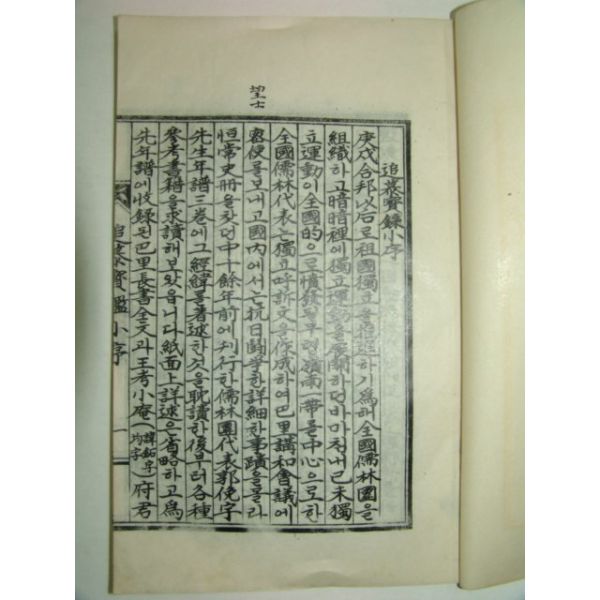 望士
追慕寶錄小序
庚戌合邦以后로祖國獨立을推進하기爲해全國儒林團을
組織하고暗暗裡에獨立運動을展開하던바마침내己未獨
立運動이全國的으로憤發됨부터嶺南一帶를中心으로한
全國儒林代表는獨立呼訴文을作成하여巴里講和會議에
密使를보내고國內에서는抗日鬪爭한詳細한事蹟을몰라
恒常史册을찾던中十餘年前에刊行한儒林團代表郭俛宇
先生年譜三卷에그經緯를著述한것을耽讀한後부터各種
參考書籍을求讀해보았읍니다紙面上詳述은省略하고爲
先年譜에收錄된巴里長書全文과王考小庵(諱 均字)府君
追慕寶鑑小序
一